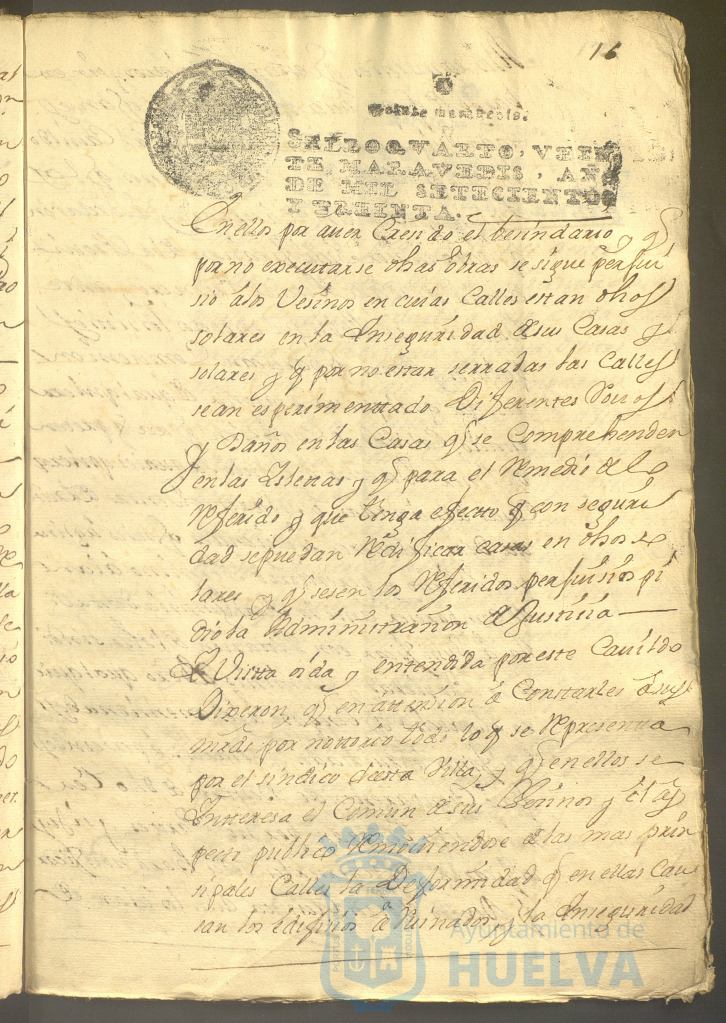 16
Veinte maravedis.
SELLO QVARTO, VEIN
TE MARAVEDIS, AÑO
DE MIL SETECIENTOS
Y TREINTA.
En ellos por aver Cresido el besindario y q̃
por no executarse dhas obras se sigue perjui
sio a los Vesinos en cuias Calles estan dhos
solares en la Inseguridad de sus Casas y
solares y q̃ por no estar serradas las Calles
se an esperimenttado Diferentes Rouos
y Daños en las Casas q̃ se Comprehenden
en las Yslettas y q̃ para el Remedio de lo
Referido y que tenga efecto q̃ con seguri
dad se puedan Redificar casas en dhos so
lares y q̃ sesen los Referidos perjuisios pi
dio la Administraz̃on de Justicia
Vista oida y entendida por este Cavildo
Dixeron q̃ en attension à Constarles à sus
mrds por nottorio todo lo q̃ se Representta
por el sindico desta Villa, y q̃ en ellos se
Ynteresa el Comun de sus Vesinos y el as
pecto publico Remouiendose de las mas prin
sipales Calles la Deformidad q̃ en ellas Cau
san los edifisios aRuinados y la Inseguridad
Ayuntamiento de
HUELVA